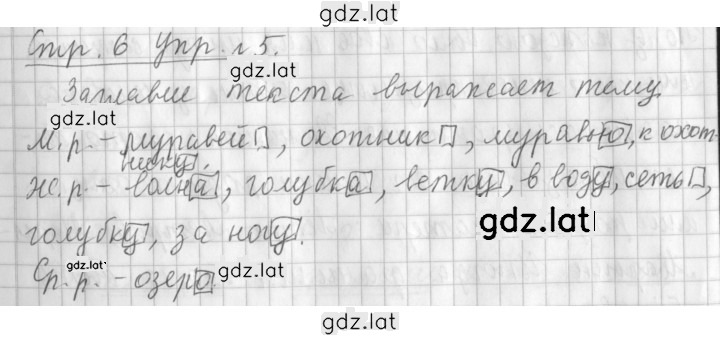 gdz.lat
Стр. 6 упр. 5.
gdz.lat
Заглавие текста выражает тему.
gdz.lat
М. р. – муравей, охотник, муравью, к охот-
нику.
gdz.lat
Ж. р. – волна, голубка, ветку, в воду, сеть,
gdz.lat
голубку, за ногу.
gdz.lat gdz.lat
Ср. р. – озеро.
gdz.lat